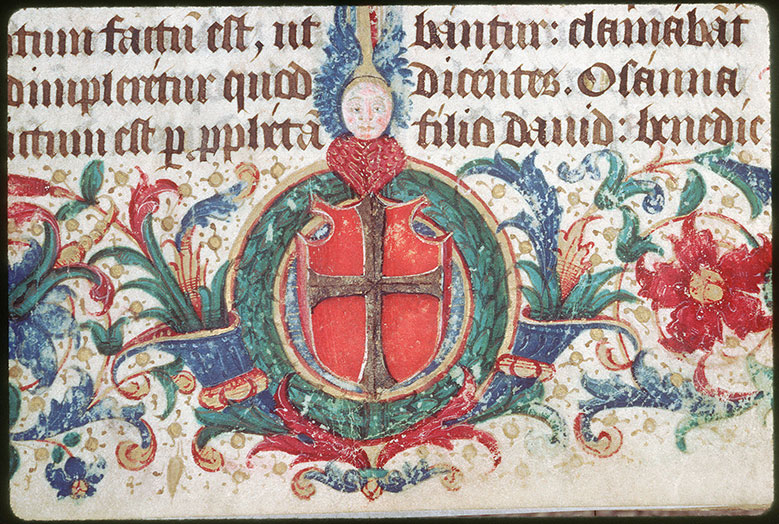 tum factū est, ut
dimpleretur quod
ictum est ꝑ ꝓphetā
bantur: clamabāt
dicentes. Osanna
filio dauid: benedic